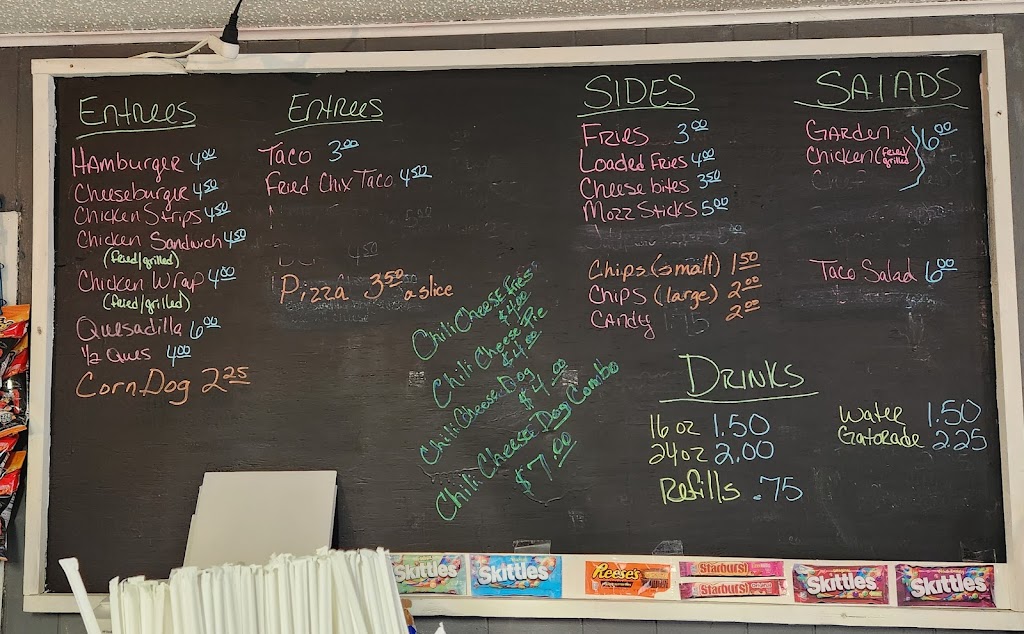 Entrees
Hamburger 4.00
Cheeseburger 4.50
Chicken Strips 4.50
Chicken Sandwich 4.50
(fried/grilled)
Chicken Wrap 4.00
(fried/grilled)
Quesadilla 6.00
1/2 Ques 4.00
Corn Dog 2.25
Entrees
Taco 3.00
Fried Chix Taco 4.50
5.00
4.50
Pizza 3.50 a slice
Chili Cheese Fries
$4.00
Chili Cheese Pie
$4.00
Chili Cheese Dog
$4.00
Chili Cheese Dog Combo
$7.00
SIDES
Fries 3.00
Loaded Fries 4.00
Cheese bites 3.50
Mozz Sticks 5.00
Chips (small) 1.50
Chips (large) 2.00
Candy 2.00
SALADS
Garden
Chicken (fried/grilled) 6.00
Taco Salad 6.00
DRINKS
16 oz 1.50
24 oz 2.00
Refills .75
Water 1.50
Gatorade 2.25
Skittles
Skittles
Reese's
Starburst
Starburst
Skittles
Skittles